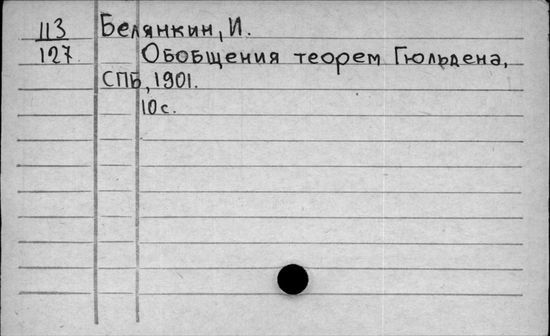 113 Белянкин, И.
127 Обобщения теорем Гюльдена,
СПБ, 1901.
10 с.